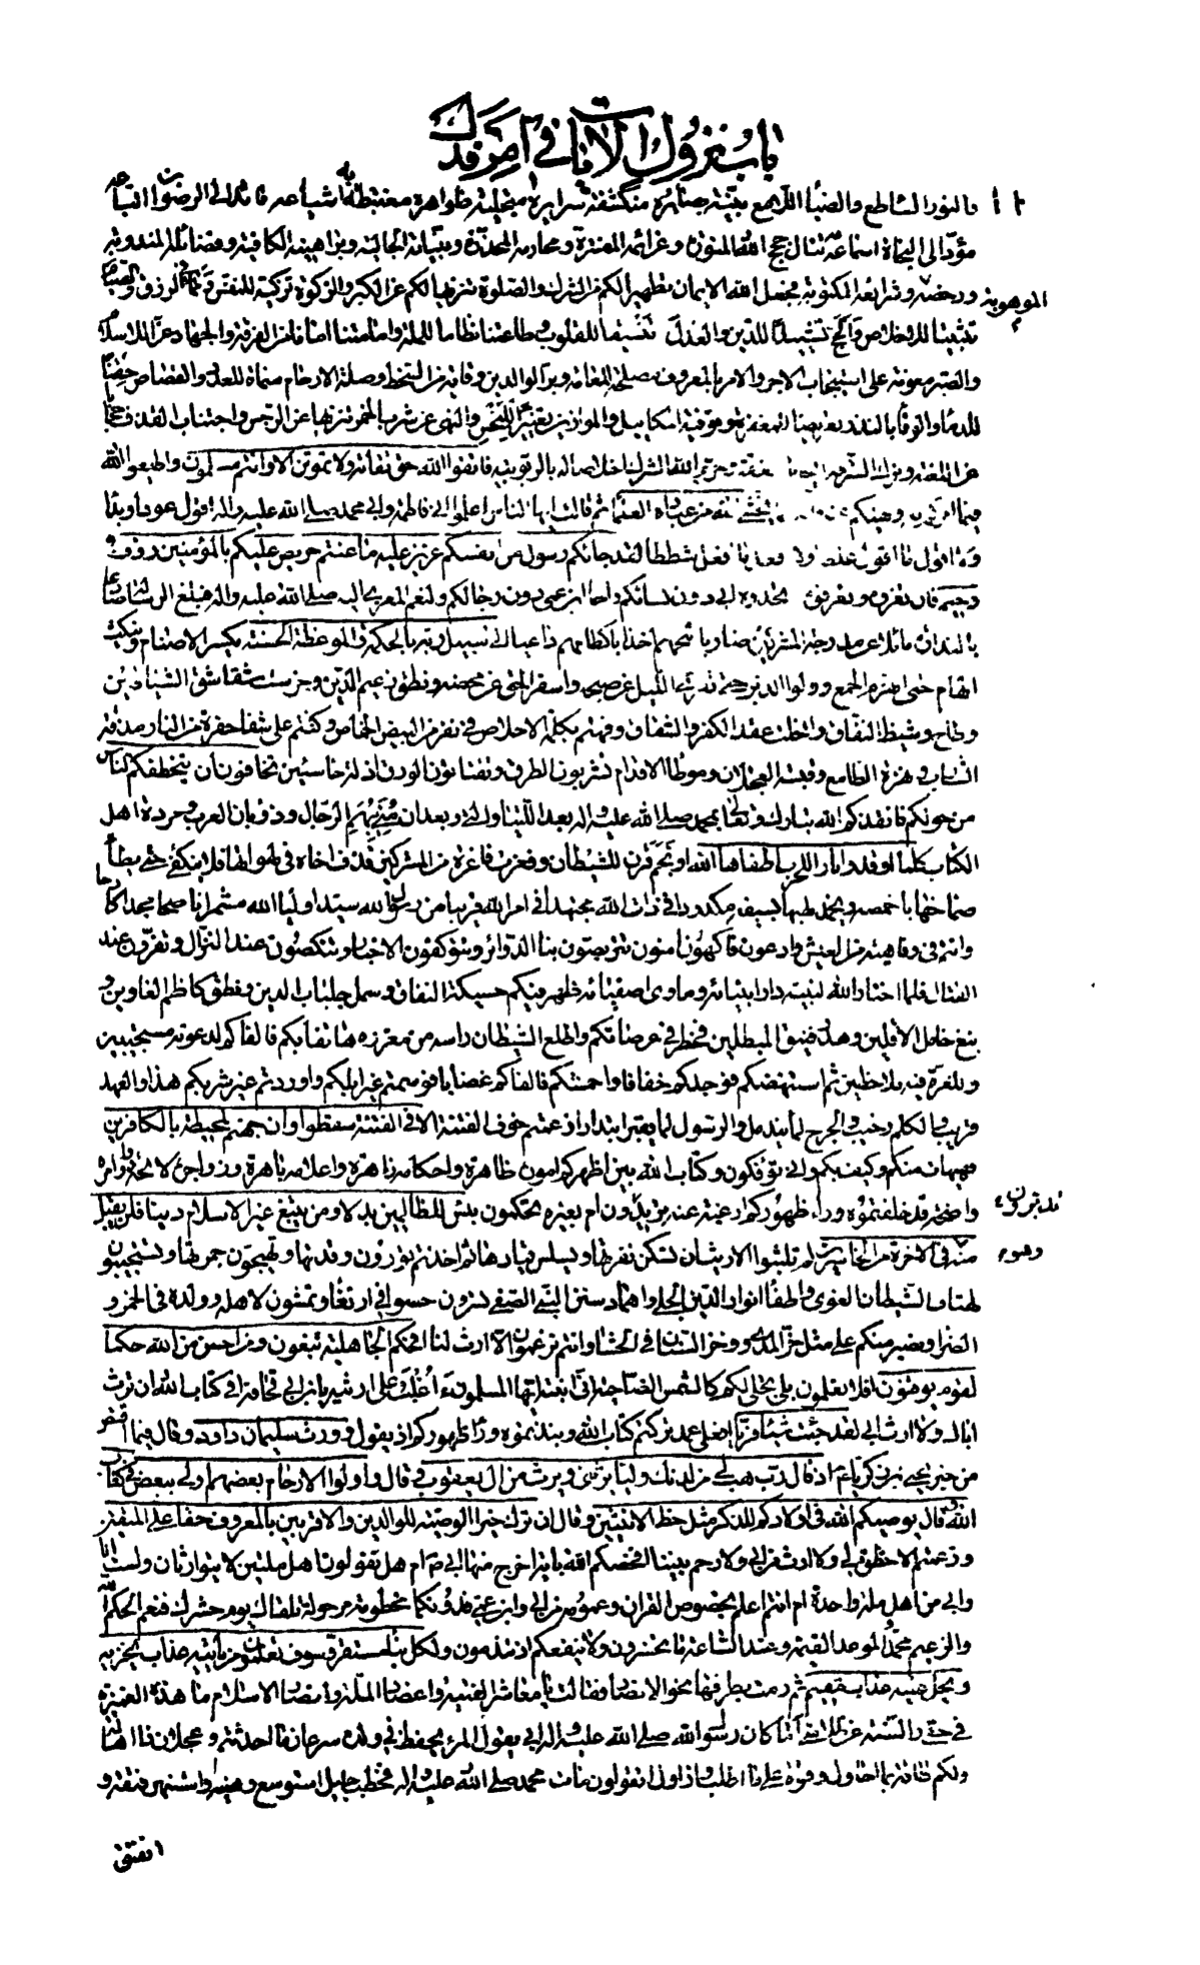 باب نزول الآيات في أمر فدك
والنور الساطع والضياء اللامع بينة بصائره منكشفة سرايره متجلية ظواهره مغتبطة به أشياعه قائد إلى الرضوان اتباعه
مؤد إلى النجاة استماعه به تنال حجج الله المنورة وعزائمه المفسرة ومحارمه المحذرة وبيناته الجالية وبراهينه الكافية وفضائله المندوبة
ورخصه الموهوبة وشرايعه المكتوبة فجعل الله الايمان تطهيرا لكم من الشرك والصلوة تنزيها لكم عن الكبر والزكوة تزكية للنفس ونماء في الرزق والصيام
تثبيتا للاخلاص والحج تشييدا للدين والعدل تنسيقا للقلوب وطاعتنا نظاما للملة وامامتنا امانا من الفرقة والجهاد عزا للاسلام
والصبر معونة على استيجاب الاجر والامر بالمعروف مصلحة للعامة وبر الوالدين وقاية من السخط وصلة الارحام منماة للعدد والقصاص حقنا
للدماء والوفاء بالنذر تعريضا للمغفرة وتوفية المكاييل والموازين تغييرا للبخس والنهي عن شرب الخمر تنزيها عن الرجس واجتناب القذف حجابا
عن اللعنة وترك السرقة ايجابا للعفة وحرم الله الشرك اخلاصا له بالربوبية فاتقوا الله حق تقاته ولا تموتن الا وانتم مسلمون واطيعوا الله
فيما امركم به ونهيكم عنه يخشى الله من عباده العلماء ثم قالت ايها الناس اعلموا اني فاطمة وابي محمد صلى الله عليه واله اقول عودا وبدءا
ولا اقول ما اقول غلطا ولا افعل ما افعل شططا لقد جائكم رسول من انفسكم عزيز عليه ما عنتم حريص عليكم بالمؤمنين رؤف
رحيم فان تعزوه وتعرفوه تجدوه ابي دون نسائكم واخا ابن عمي دون رجالكم ولنعم المعزي اليه صلى الله عليه واله فبلغ الرسالة صادعا
بالنذارة مائلا عن مدرجة المشركين ضاربا ثبجهم اخذا باكظامهم داعيا الى سبيل ربه بالحكمة والموعظة الحسنة يكسر الاصنام وينكت
الهام حتى انهزم الجمع وولوا الدبر حتى تفرى الليل عن صبحه واسفر الحق عن محضه ونطق زعيم الدين وخرست شقاشق الشياطين
وطاح وشيظ النفاق وانحلت عقد الكفر والشقاق وفهتم بكلمة الاخلاص في نفر من البيض الخماص وكنتم على شفا حفرة من النار مذقة
الشارب ونهزة الطامع وقبسة العجلان وموطأ الاقدام تشربون الطرق وتقتاتون الورق اذلة خاسئين تخافون ان يتخطفكم الناس
من حولكم فانقذكم الله تبارك وتعالى بمحمد صلى الله عليه واله بعد اللتيا والتي وبعد ان مني ببهم الرجال وذؤبان العرب ومردة اهل
الكتاب كلما اوقدوا نارا للحرب اطفاها الله او نجم قرن للشيطان وفغرت فاغرة من المشركين قذف اخاه في لهواتها فلا ينكفئ حتى يطأ
صماخها باخمصه ويخمد لهبها بسيفه مكدودا في ذات الله مجتهدا في امر الله قريبا من رسول الله سيد اولياء الله مشمرا ناصحا مجدا كادحا
وانتم في رفاهية من العيش وادعون فاكهون امنون تتربصون بنا الدوائر وتتوكفون الاخبار وتنكصون عند النزال وتفرون عند
القتال فلما اختار الله لنبيه دار انبيائه وماوى اصفيائه ظهر فيكم حسيكة النفاق وسمل جلباب الدين ونطق كاظم الغاوين و
نبغ خامل الاقلين وهدر فنيق المبطلين فخطر في عرصاتكم واطلع الشيطان راسه من مغرزه هاتفا بكم فالفاكم لدعوته مستجيبين
وللغرة فيه ملاحظين ثم استنهضكم فوجدكم خفافا واحمشكم فالفاكم غضابا فوسمتم غير ابلكم واوردتم غير شربكم هذا والعهد
قريب والكلم رحيب والجرح لما يندمل والرسول لما يقبر ابتدارا زعمتم خوف الفتنة الا في الفتنة سقطوا وان جهنم لمحيطة بالكافرين
فهيهات منكم وكيف بكم وانى تؤفكون وكتاب الله بين اظهركم اموره ظاهرة واحكامه زاهرة واعلامه باهرة وزواجره لائحة واوامره
واضحة قد خلفتموه وراء ظهوركم ارغبة عنه تدبرون ام بغيره تحكمون بئس للظالمين بدلا ومن يبتغ غير الاسلام دينا فلن يقبل
منه وهو في الاخرة من الخاسرين ثم لم تلبثوا الا ريث ان تسكن نفرتها ويسلس قيادها ثم اخذتم تورون وقدتها وتهيجون جمرتها وتستجيبون
لهتاف الشيطان الغوى واطفاء انوار الدين الجلي واهماد سنن النبي الصفي تسرون حسوا في ارتغاء وتمشون لاهله وولده في الخمر و
الضراء ونصبر منكم على مثل حز المدى ووخز السنان في الحشا وانتم تزعمون الا ارث لنا افحكم الجاهلية تبغون ومن احسن من الله حكما
لقوم يوقنون افلا تعلمون بلى تجلى لكم كالشمس الضاحية اني ابنته ايها المسلمون ءاغلب على ارثيه يا بن ابي قحافة افي كتاب الله ان ترث
اباك ولا ارث ابي لقد جئت شيئا فريا افعلى عمد تركتم كتاب الله ونبذتموه وراء ظهوركم اذ يقول وورث سليمان داود وقال فيما اقتص
من خبر يحيى بن زكريا ع اذ قال رب هب لي من لدنك وليا يرثني ويرث من ال يعقوب وقال واولوا الارحام بعضهم اولى ببعض في كتاب
الله وقال يوصيكم الله في اولادكم للذكر مثل حظ الانثيين وقال ان ترك خيرا الوصية للوالدين والاقربين بالمعروف حقا على المتقين
وزعمتم الا حظوة لي ولا ارث من ابي ولا رحم بيننا افخصكم الله باية اخرج منها ابي ص ام هل تقولون اهل ملتين لا يتوارثان ولست انا
وابي من اهل ملة واحدة ام انتم اعلم بخصوص القران وعمومه من ابي وابن عمي فدونكها مخطومة مرحولة تلقاك يوم حشرك فنعم الحكم الله
والزعيم محمد والموعد القيمة وعند الساعة ما تخسرون ولا ينفعكم اذ تندمون ولكل نبأ مستقر وسوف تعلمون من ياتيه عذاب يخزيه
ويحل عليه عذاب مقيم ثم رمت بطرفها نحو الانصار فقالت يا معاشر الفتية واعضاد الملة وانصار الاسلام ما هذه الغميزة
في حقي والسنة عن ظلامتي اما كان رسول الله صلى الله عليه واله ابي يقول المرء يحفظ في ولده سرعان ما احدثتم وعجلان ذا اهالة
ولكم طاقة بما احاول وقوة على ما اطلب وازاول اتقولون مات محمد صلى الله عليه واله فخطب جليل استوسع وهيه واستنهر فتقه و
انفتق